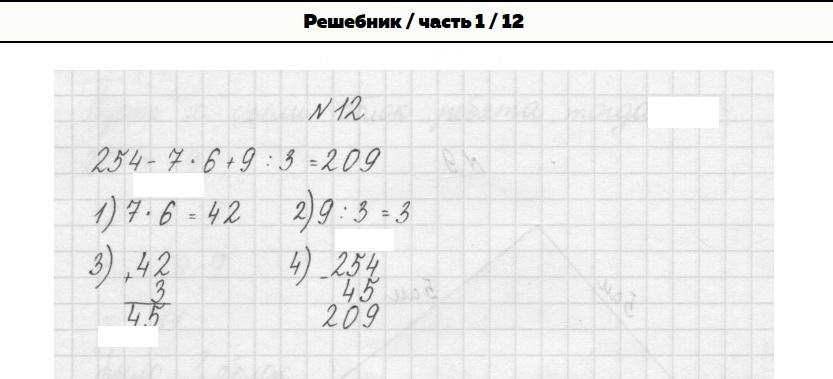 Решебник / часть 1 / 12
№12
254 - 7 · 6 + 9 : 3 = 209
1) 7 · 6 = 42 2) 9 : 3 = 3
3) + 42 4) - 254
3 45
45 209